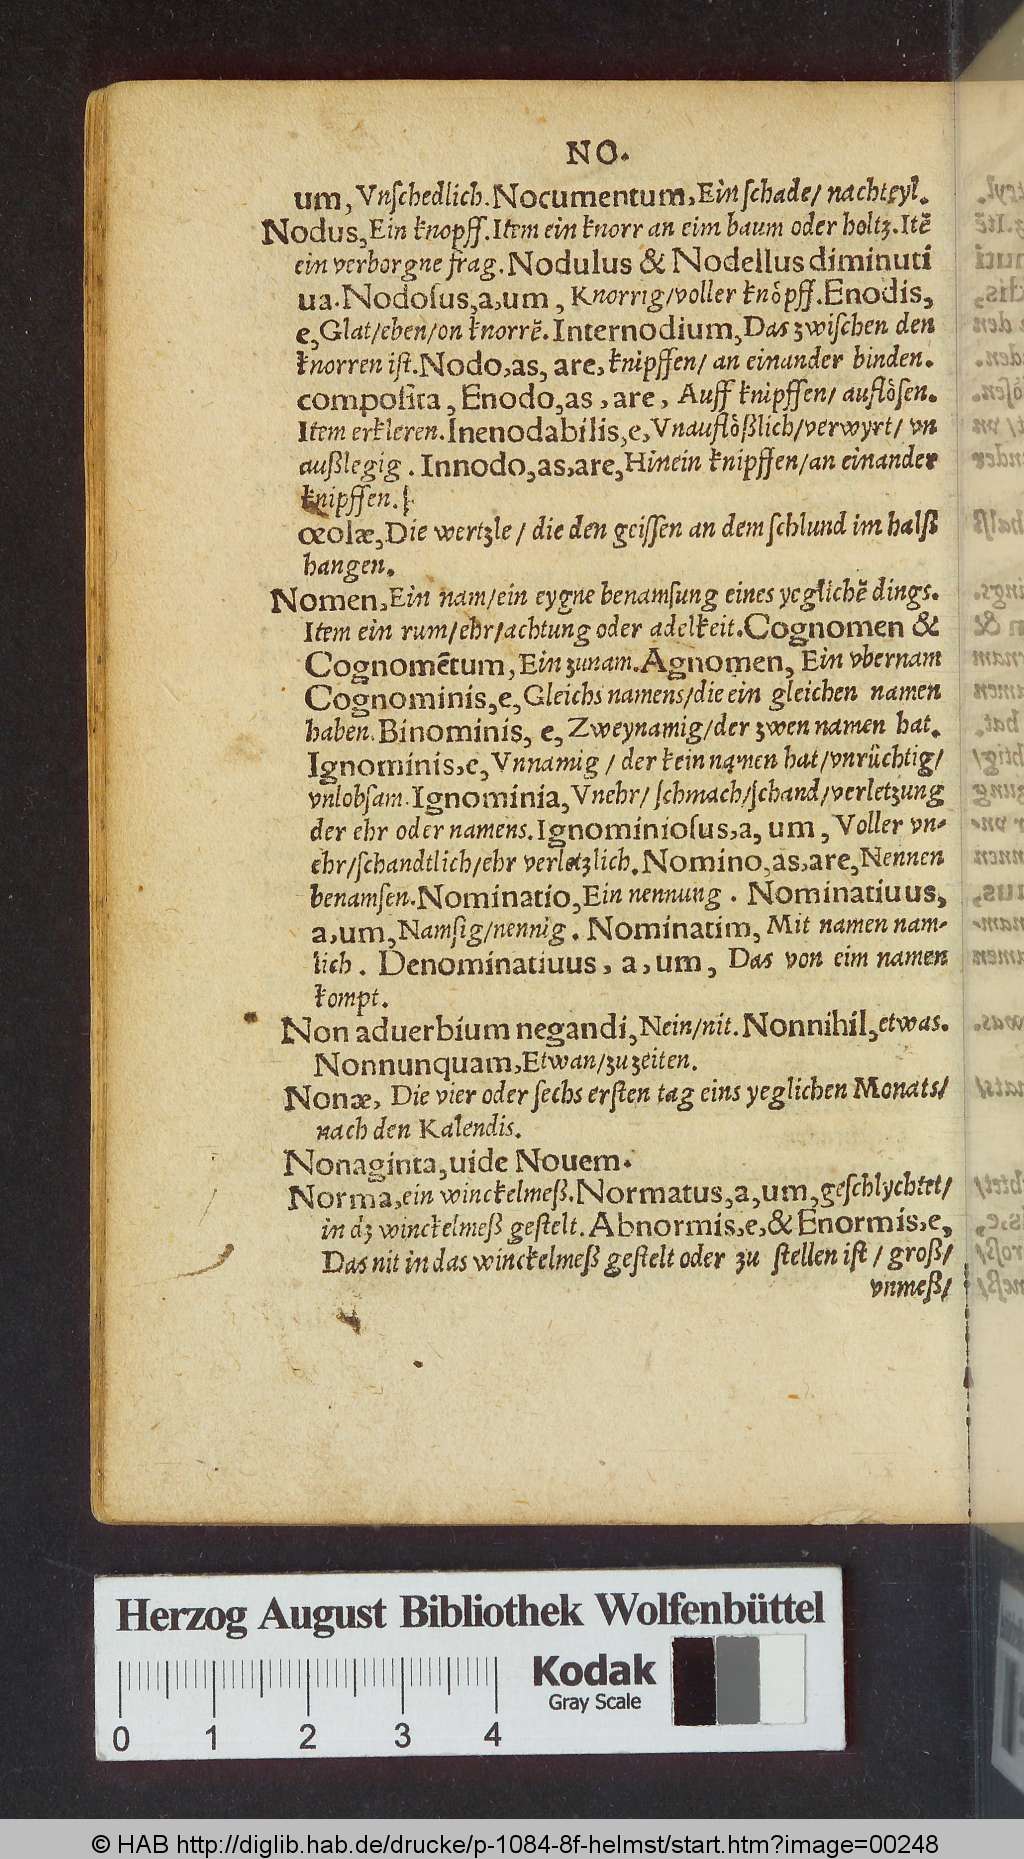 NO.
um, Vnſchedlich. Nocumentum, Ein ſchade/ nachteyl.
Nodus, Ein knopff. Item ein knorr an eim baum oder holtz. Itē
ein verborgne frag. Nodulus & Nodellus diminuti
ua. Nodoſus, a, um, Knorrig/voller knöpff. Enodis,
e, Glat/eben/on knorrē. Internodium, Das zwiſchen den
knorren iſt. Nodo, as, are, knipffen/ an einander binden.
compoſita, Enodo, as, are, Auff knipffen/ auflöſen.
Item erkleren. Inenodabilis, e, Vnauflößlich/verwyrt/ vn
außlegig. Innodo, as, are, Hinein knipffen/an einander
knipffen.
œolæ, Die wertzle / die den geiſſen an dem ſchlund im halß
hangen.
Nomen, Ein nam/ein eygne benamſung eines yeglichē dings.
Item ein rum/ehr/achtung oder adelkeit. Cognomen &
Cognomētum, Ein zunam. Agnomen, Ein vbernam
Cognominis, e, Gleichs namens/die ein gleichen namen
haben. Binominis, e, Zweynamig/der zwen namen hat.
Ignominis, e, Vnnamig / der kein namen hat/vnrüchtig/
vnlobſam. Ignominia, Vnehr/ ſchmach/ſchand/verletzung
der ehr oder namens. Ignominioſus, a, um, Voller vn-
ehr/ſchandtlich/ehr verletzlich. Nomino, as, are, Nennen
benamſen. Nominatio, Ein nennung. Nominatiuus,
a, um, Namſig/nennig. Nominatim, Mit namen nam-
lich. Denominatiuus, a, um, Das von eim namen
kompt.
Non aduerbium negandi, Nein/nit. Nonnihil, etwas.
Nonnunquam, Etwan/zu zeiten.
Nonæ, Die vier oder ſechs erſten tag eins yeglichen Monats/
nach den Kalendis.
Nonaginta, uide Nouem.
Norma, ein winckelmeß. Normatus, a, um, geſchlychtet/
in dz winckelmeß geſtelt. Abnormis, e, & Enormis, e,
Das nit in das winckelmeß geſtelt oder zu ſtellen iſt / groß/
vnmeß/
Herzog August Bibliothek Wolfenbüttel
Kodak
Gray Scale
0 1 2 3 4
© HAB http://diglib.hab.de/drucke/p-1084-8f-helmst/start.htm?image=00248